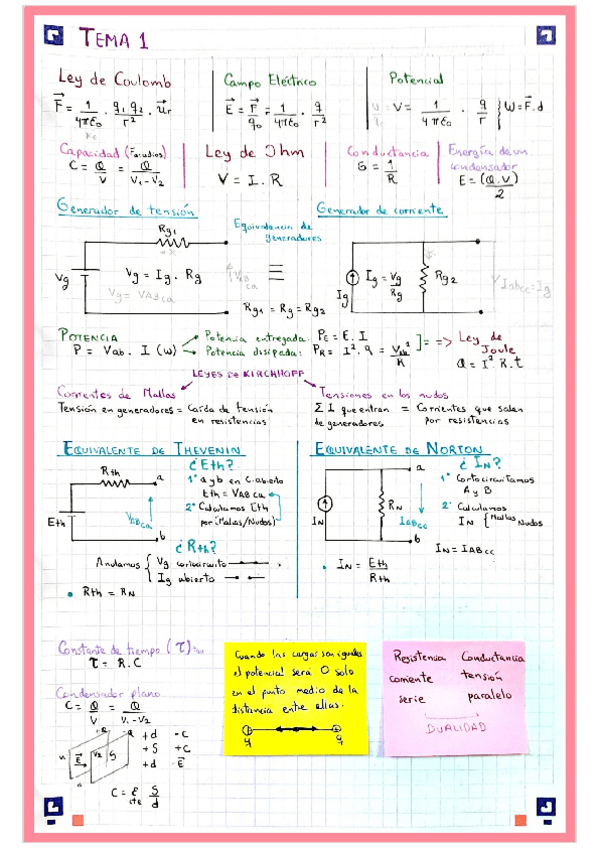 TEMA 1
Ley de Coulomb
F = 1/4πε₀ · q₁ q₂/r² · ur
Campo Eléctrico
E = F/q₀ = 1/4πε₀ · q/r²
Potencial
V = 1/4πε₀ · q/r } W = F.d
Capacidad (Faradios)
C = Q/V = Q/V₁-V₂
Ley de Ohm
V = I.R
Conductancia
G = 1/R
Energía de un
condensador
E = (Q.V)/2
Generador de tensión
Rg₁
Vg
Vg = Ig. Rg
Vg = VABca
Equivalencia de
generadores
VABca
≡
Rg₁ = Rg = Rg₂
Generador de corriente
Ig
Ig = Vg/Rg
Rg₂
IABcc = Ig
POTENCIA
P = Vab. I (W)
Potencia entregada: PE = E. I
Potencia disipada: PR = I².
=> Ley de
Joule
Q = I² R.t
LEYES DE KIRCHHOFF
Corrientes de Mallas
Tensión en generadores = Caída de tensión
en resistencias
Tensiones en los nudos
Σ I que entran = Corrientes que salen
de generadores por resistencias
EQUIVALENTE DE THEVENIN
Rth
a
Eth
VABca
b
¿Eth?
1º a y b en C.abierto
Eth = VABca
2º Calculamos Eth
por (Mallas/Nudos)
¿Rth?
Andamos { Vg cortocircuito
Ig abierto
Rth = RN
EQUIVALENTE DE NORTON
a
IN
RN
IABcc
b
¿IN?
1º Cortocircuitamos
A y B
2º Calculamos
IN { Mallas
Nudos
IN = IABcc
IN = Eth/Rth
Constante de tiempo (τ)
τ = R.C
Condensador plano
C = Q/V = Q/V₁-V₂
E
V₂
S
+d -C
+S +C
+d -E
C = ε S/d
cte
Cuando las cargas son iguales
el potencial será 0 solo
en el punto medio de la
distancia entre ellas.
q
q
Resistencia Conductancia
corriente tensión
serie paralelo
DUALIDAD